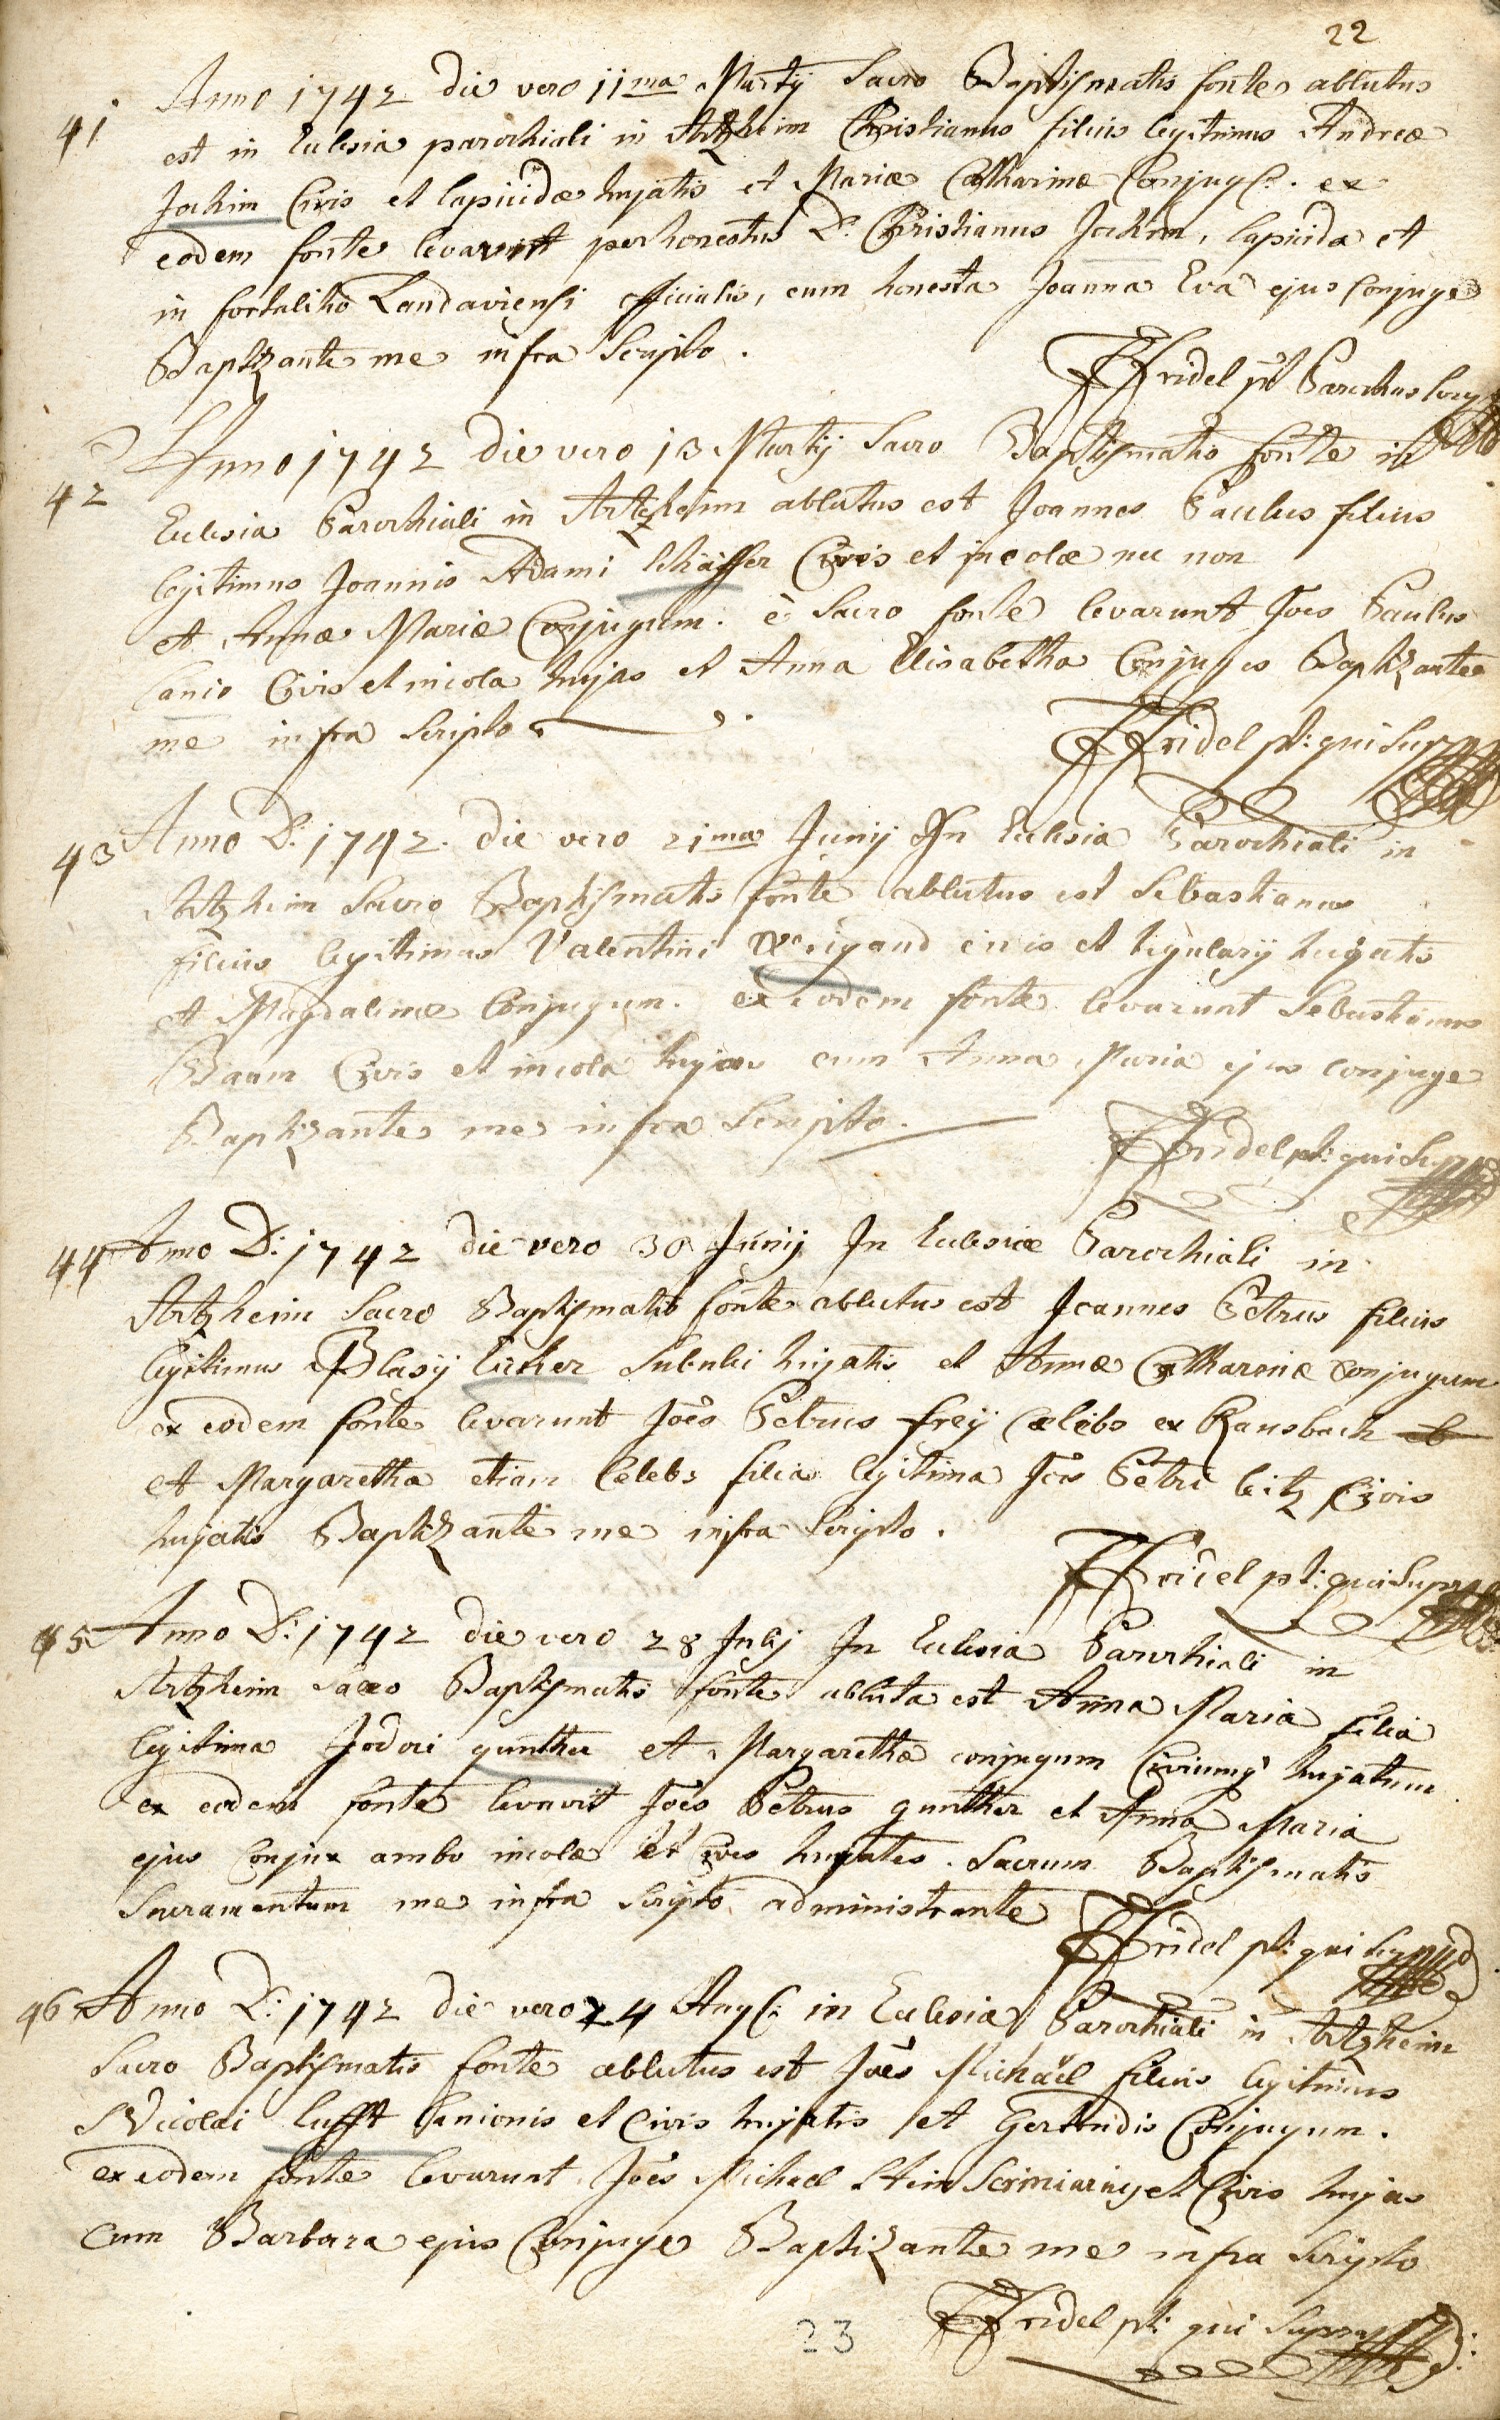 22
41 Anno 1742 die vero 11ma Martij Sacro Baptismatis fonte ablutus
est in Eclesia parochiali in Artzheim Christianus filius legitimus Andreæ
Jochim Civis et lapicidæ hujatis et Mariæ Catharinæ Conjug. ex
eodem fonte levarunt perhonestus D. Christianus Jochim, lapicida et
in fortalitio Landaviensi officialis, cum honesta Joanna Eva ejus Conjuge
Baptizante me infra Scripto.
Fridel Parochus loci
42 Anno 1742 die vero 13 Martij Sacro Baptismatis fonte in
Eclesia Parochiali in Artzheim ablutus est Joannes Paulus filius
legitimus Joannis Adami schäffer Civis et incolæ nec non
et Annæ Mariæ Conjugum. è Sacro fonte levarunt Joes Paulus
Civis et incola hujas et Anna Elisabetha Conjuges Baptizante
me infra Scripto.
Fridel pl: qui Supra
43 Anno D: 1742. die vero 21ma Junij In Eclesia Parochiali in
Artzheim Sacro Baptismatis fonte ablutus est Sebastianus
filius legitimus Valentini Weigand civis et tegularij hujatis
et Magdalenæ Conjugum. ex eodem fonte levarunt Sebastianus
Baum Civis et incola hujas cum Anna Maria ejus conjuge
Baptizante me infra Scripto.
Fridel pl: qui Supra
44 Anno D: 1742 die vero 30 Junij In Eclesiæ Parochiali in
Artzheim Sacro Baptismatis fonte ablutus est Joannes Petrus filius
legitimus Blasij Lecher Subulci hujatis et Annæ Catharinæ conjugum
ex eodem fonte levarunt Joes Petrus frey Cælebs ex Ransbach et
et Margaretha etiam Celebs filia legitima Jois Petri leitz Civis
hujatis Baptizante me infra Scripto.
Fridel pl: qui Supra
45 Anno D: 1742 die vero 28 Julij In Eclesia Parochiali in
Artzheim Sacro Baptismatis fonte abluta est Anna Maria filia
legitima Jodoci gunther et Margarethæ conjugum Civiumq hujatum
ex eodem fonte levavit Joes Petrus gunther et Anna Maria
ejus Conjux ambo incolæ et Cives hujates. Sacrum Baptismatis
Sacramentum me infra Scripto administrante
Fridel pl: qui Supra
46 Anno D: 1742 die vero 24 Aug: in Eclesia Parochiali in Artzheim
Sacro Baptismatis fonte ablutus est Joes Michaël filius legitimus
Nicolai lufft Senionis et Civis hujatis et Gertrudis Conjugum.
ex eodem fonte levarunt Joes Michael Stein Scriniarius et Civis hujas
Cum Barbara ejus Conjuge Baptizante me infra Scripto
Fridel pl: qui Supra
23